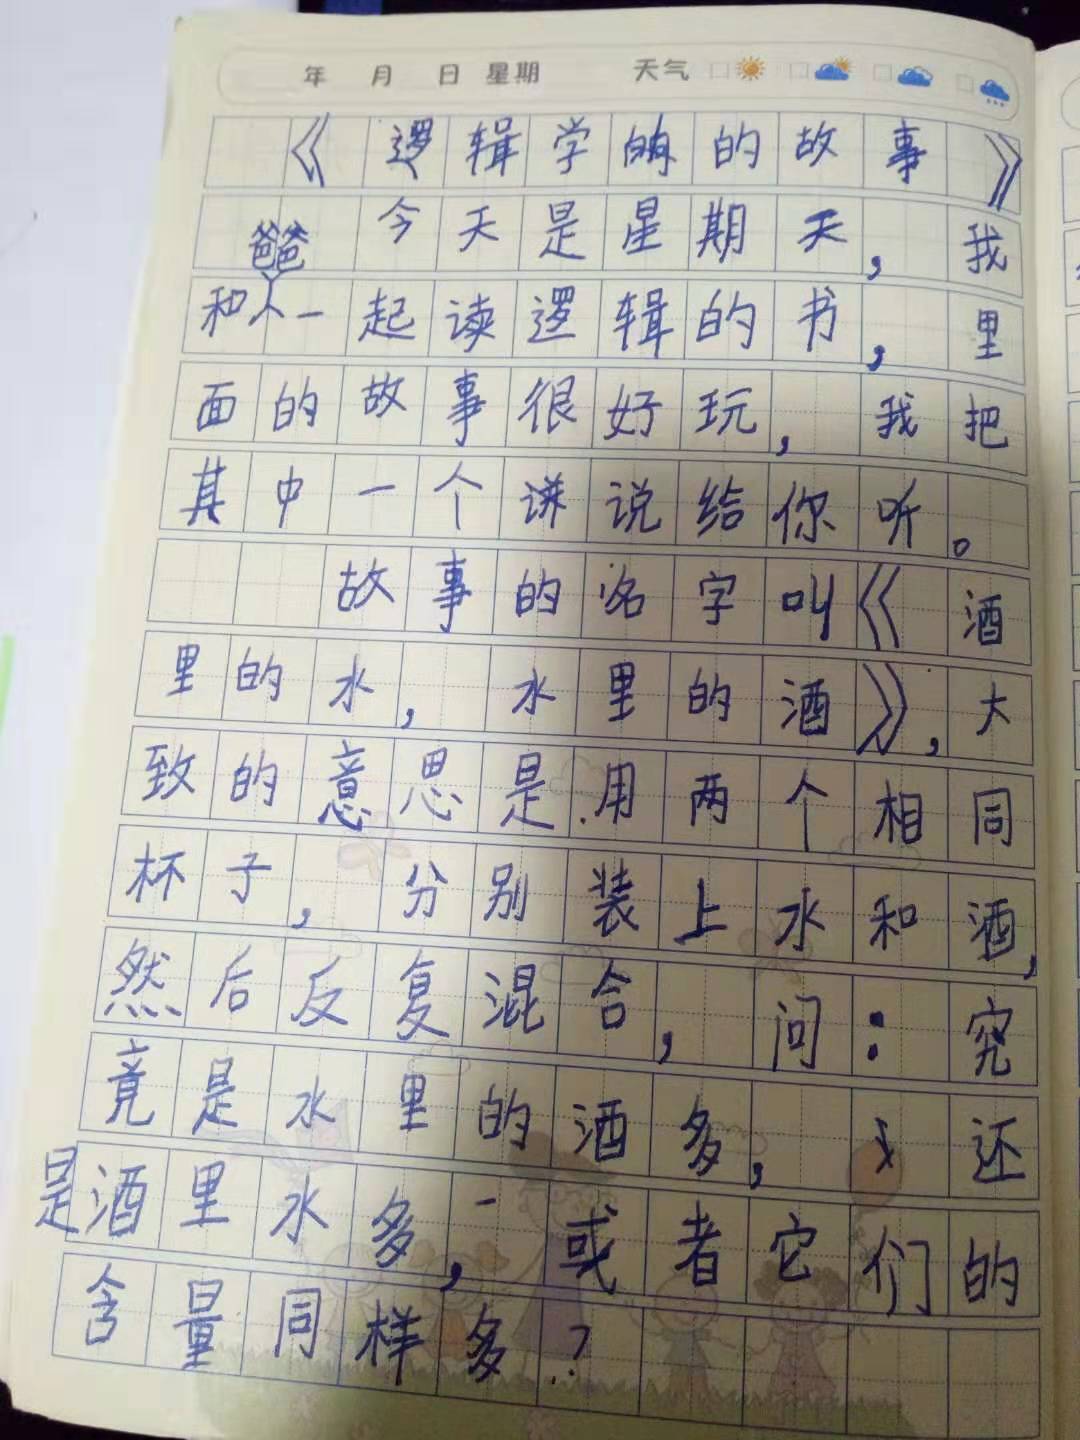 年 月 日 星期 天气
《逻辑学的的故事》
今天是星期天，我
和爸爸一起读逻辑的书，里
面的故事很好玩，我把
其中一个讲说给你听。
故事的名字叫《酒
里的水，水里的酒》，大
致的意思是用两个相同
杯子，分别装上水和酒，
然后反复混合，问：究
竟是水里的酒多，还
是酒里水多，或者它们的
含量同样多？